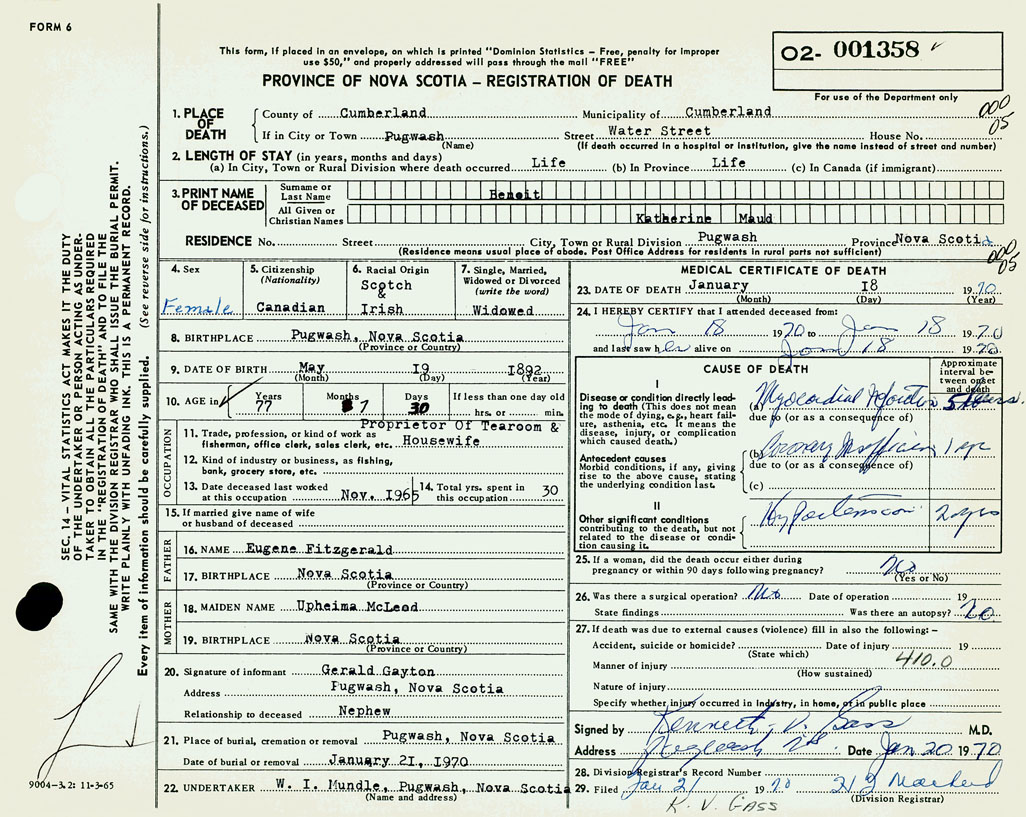 FORM 6
This form, if placed in an envelope, on which is printed "Dominion Statistics – Free, penalty for improper
use $50," and properly addressed will pass through the mail "FREE"
PROVINCE OF NOVA SCOTIA – REGISTRATION OF DEATH
02- 001358
For use of the Department only
SEC. 14 – VITAL STATISTICS ACT MAKES IT THE DUTY
OF THE UNDERTAKER OR PERSON ACTING AS UNDER-
TAKER TO OBTAIN ALL THE PARTICULARS REQUIRED
IN THE "REGISTRATION OF DEATH" AND TO FILE THE
SAME WITH THE DIVISION REGISTRAR WHO SHALL ISSUE THE BURIAL PERMIT.
WRITE PLAINLY WITH UNFADING INK. THIS IS A PERMANENT RECORD.
Every item of information should be carefully supplied. (See reverse side for instructions.)
1. PLACE OF DEATH
County of Cumberland Municipality of Cumberland
000
05
If in City or Town Pugwash Street Water Street House No.
(Name) (If death occurred in a hospital or institution, give the name instead of street and number)
2. LENGTH OF STAY (in years, months and days)
(a) In City, Town or Rural Division where death occurred Life (b) In Province Life (c) In Canada (if immigrant)
3. PRINT NAME OF DECEASED
Surname or Last Name Benoit
All Given or Christian Names Katherine Maud
RESIDENCE No. Street City, Town or Rural Division Pugwash Province Nova Scotia
(Residence means usual place of abode. Post Office Address for residents in rural parts not sufficient)
000
05
4. Sex
Female
5. Citizenship
(Nationality)
Canadian
6. Racial Origin
Scotch
&
Irish
7. Single, Married,
Widowed or Divorced
(write the word)
Widowed
8. BIRTHPLACE Pugwash, Nova Scotia
(Province or Country)
9. DATE OF BIRTH May 19 1892
(Month) (Day) (Year)
10. AGE in
Years 77 Months 7 Days 30
If less than one day old
hrs. or min.
OCCUPATION
11. Trade, profession, or kind of work as
fisherman, office clerk, sales clerk, etc.
Proprietor Of Tearoom &
Housewife
12. Kind of industry or business, as fishing,
bank, grocery store, etc.
13. Date deceased last worked
at this occupation Nov. 1965
14. Total yrs. spent in
this occupation 30
15. If married give name of wife
or husband of deceased
FATHER
16. NAME Eugene Fitzgerald
17. BIRTHPLACE Nova Scotia
(Province or Country)
MOTHER
18. MAIDEN NAME Upheima McLeod
19. BIRTHPLACE Nova Scotia
(Province or Country)
20. Signature of informant Gerald Gayton
Address Pugwash, Nova Scotia
Relationship to deceased Nephew
21. Place of burial, cremation or removal Pugwash, Nova Scotia
Date of burial or removal January 21, 1970
22. UNDERTAKER W. I. Mundle, Pugwash, Nova Scotia
(Name and address)
9004-3.2: 11-3-65
MEDICAL CERTIFICATE OF DEATH
23. DATE OF DEATH January 18 1970
(Month) (Day) (Year)
24. I HEREBY CERTIFY that I attended deceased from:
Jan 18 1970 to Jan 18 1970
and last saw her alive on Jan 18 1970
CAUSE OF DEATH
Approximate
interval be-
tween onset
and death
I
Disease or condition directly lead-
ing to death (This does not mean
the mode of dying, e.g., heart fail-
ure, asthenia, etc. It means the
disease, injury, or complication
which caused death.)
(a) Myocardial
due to (or as a consequence of)
Antecedent causes
Morbid conditions, if any, giving
rise to the above cause, stating
the underlying condition last.
(b) Coronary 1 yr
due to (or as a consequence of)
(c)
II
Other significant conditions
contributing to the death, but not
related to the disease or condi-
tion causing it.
Hypertension 2 yrs
25. If a woman, did the death occur either during
pregnancy or within 90 days following pregnancy? No
(Yes or No)
26. Was there a surgical operation? No Date of operation 19
State findings Was there an autopsy? No
27. If death was due to external causes (violence) fill in also the following: –
Accident, suicide or homicide? Date of injury 19
(State which)
410.0
Manner of injury
(How sustained)
Nature of injury
Specify whether injury occurred in industry, in home, or in public place
Signed by Kenneth V. Gass M.D.
Address Pugwash NS Date Jan 20 1970
28. Division Registrar's Record Number
29. Filed Jan 21 1970
(Division Registrar)
K. V. GASS